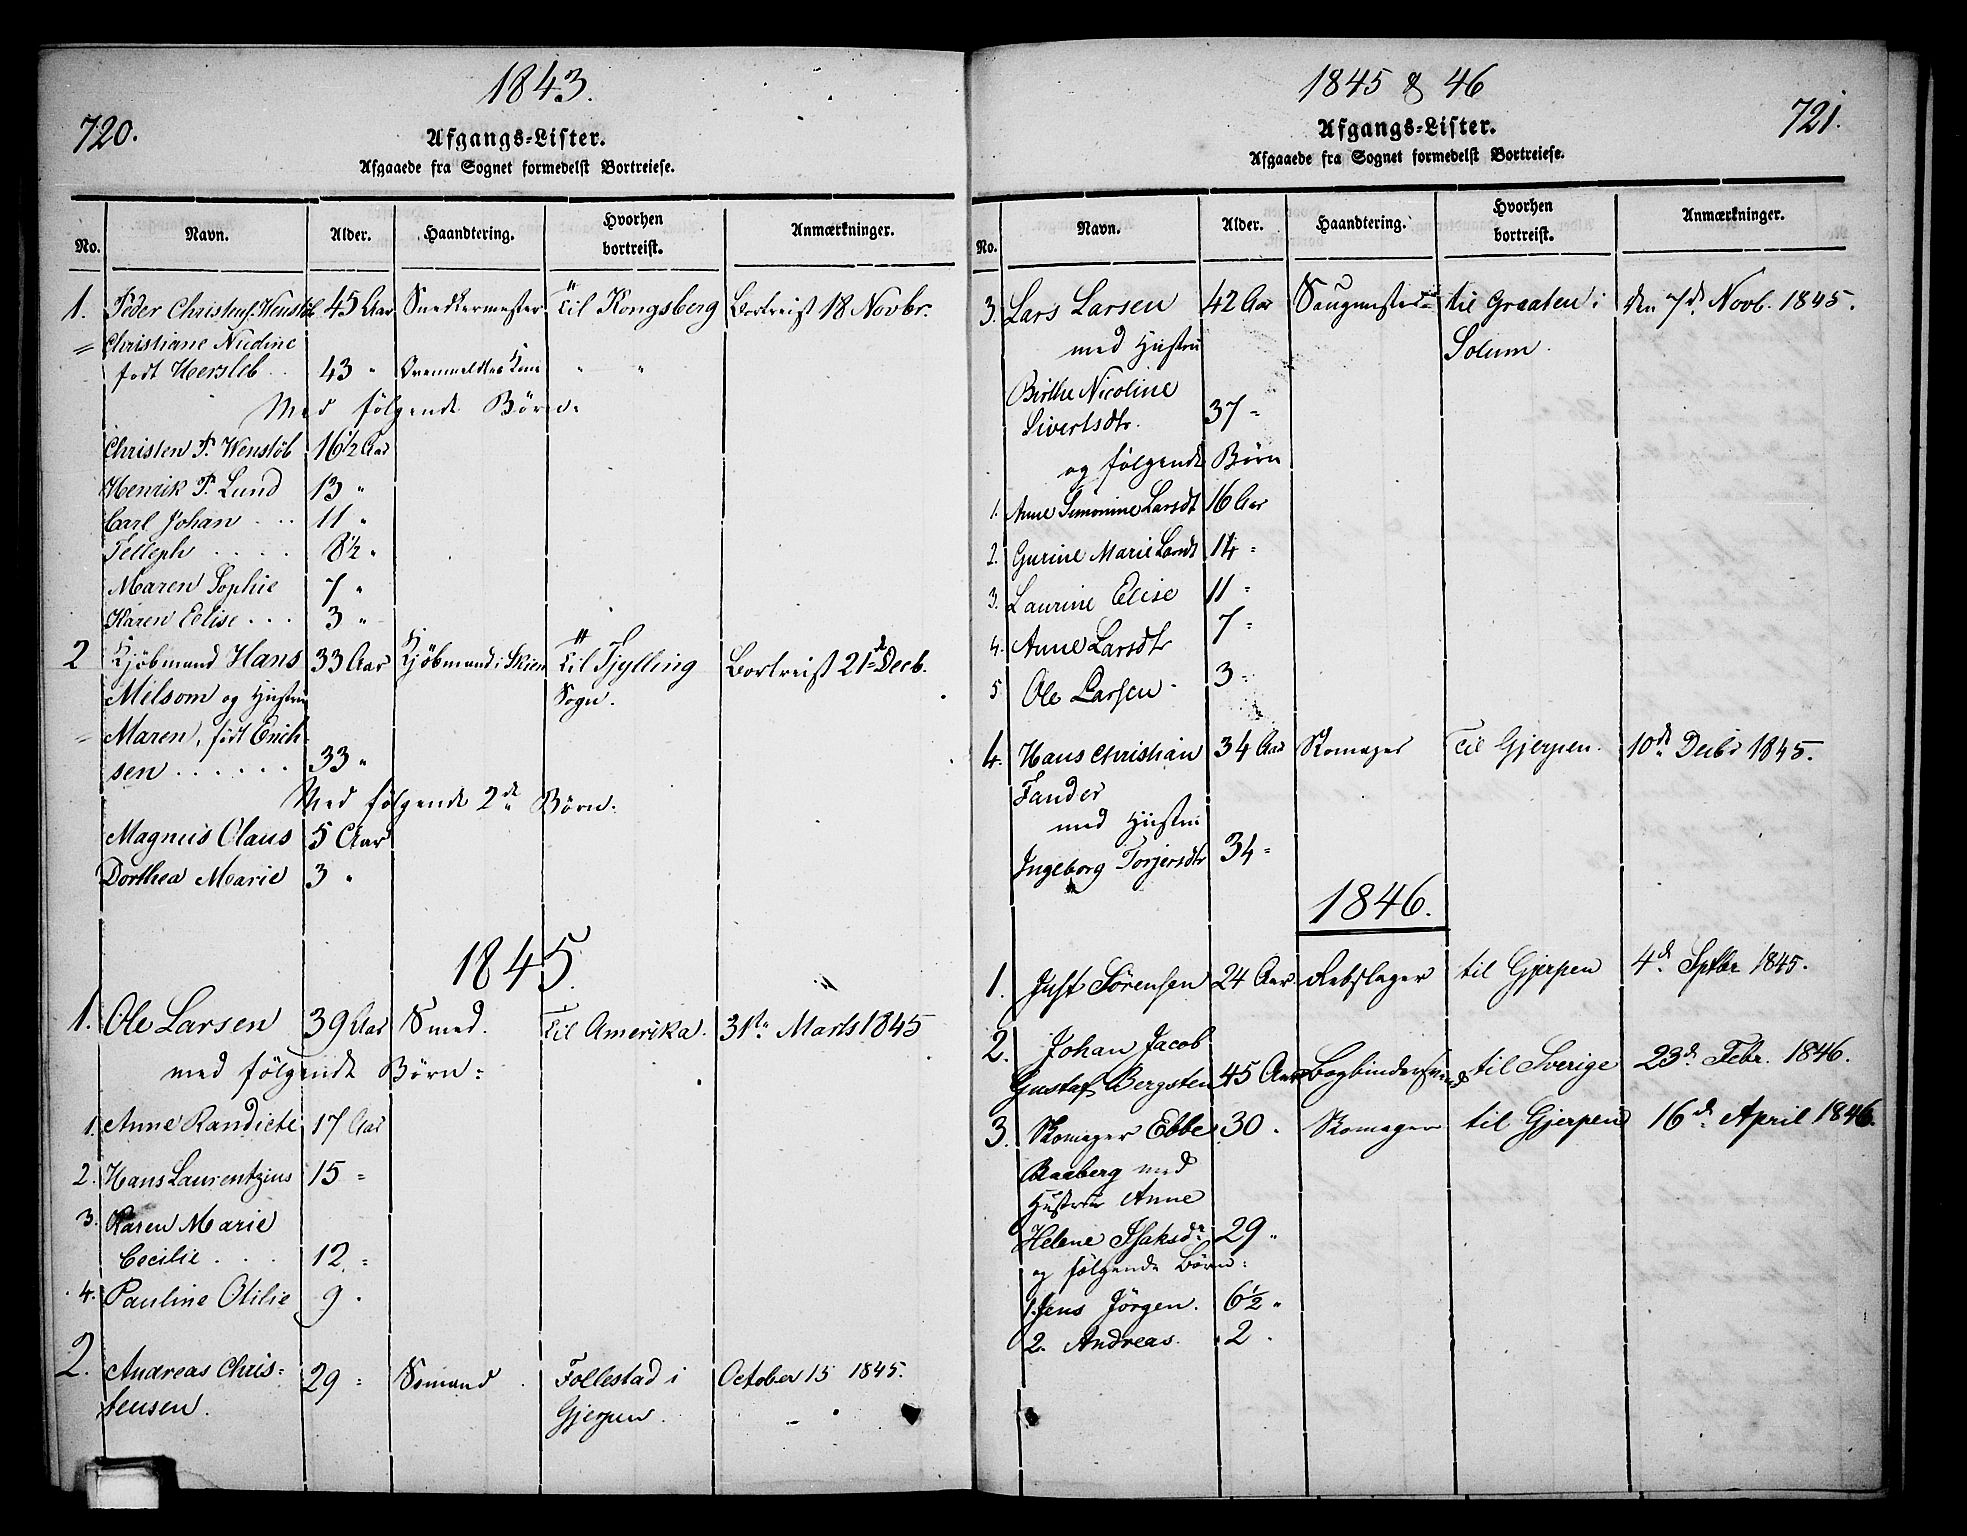 1843.
720.
Afgangs-Lister.
Afgaaede fra Sognet formedelst Bortreiese.
No. Navn. Alder. Haandtering. Hvorhen bortreist. Anmærkninger.
1. Peder Christens. Wenstöb 45 Aar Snedkermester Til Kongsberg Bortreist 18 Novbr.
= Christiane Nicoline
født Hersleb . . 43 " Ovenmeldtes Kone " "
Med følgende Börn:
Christen P. Wenstöb 16½ Aar
Henrik P. Lund 13 "
Carl Johan . . . 11 "
Telleph . . . . 8½ "
Maren Sophie 7 "
Karen Elise . . . 3 "
2 Kjöbmand Hans 33 Aar Kjöbmand i Skien Til Tjylling Bortreist 21de Decb.
Milsom og Hustru Sogn.
= Maren, født Erich-
sen . . . . . . 33 "
Med følgende 2de Börn:
Magnus Claus 5 Aar
Dorthea Marie 3 "
1845.
1. Ole Larsen 39 Aar Smed. Til Amerika. 31te Marts 1845
med følgende Börn:
1. Anne Kandicte 17 Aar
2. Hans Laurentzius 15 =
3. Karen Marie
Cecilie . . . 12. =
4. Pauline Otilie 9 .
2. Andreas Chris- 29 = Sömand . Follestad i October 15 1845.
tensen. Gjerpen.
1845 & 46
721.
Afgangs-Lister.
Afgaaede fra Sognet formedelst Bortreiese.
No. Navn. Alder. Haandtering. Hvorhen bortreist. Anmærkninger.
3. Lars Larsen 42 Aar Saugmester til Graaten i den 7de Novb. 1845.
med Hustru Solum.
Birthe Nicoline
Sivertsdtr. 37 =
og følgende Börn
1. Anne Simonine Larsdt 16 Aar
2. Gurine Marie Larsdt 14 =
3. Laurine Elise 11 =
4. Anne Larsdtr 7 =
5 Ole Larsen 3 =
4. Hans Christian 34 Aar Skomager Til Gjerpen. 10de Decbr 1845.
Fander
med Hustru
Ingeborg Torjersdtr 34 =
1846.
1. Just Sörensen 24 Aar. Rebslager til Gjerpen 4de Sptbr 1845.
2. Johan Jacob
Gustaf Bergsten 45 Aar Bogbindersvend til Sverige 23de Febr. 1846.
3. Skomager Ebbe 30 . Skomager til Gjerpen 16de April 1846.
Raaberg med
Hustru Anne
Helene Isaksdr 29 "
og følgende Börn:
1. Jens Jörgen. 6½ "
2. Andreas. 2 .